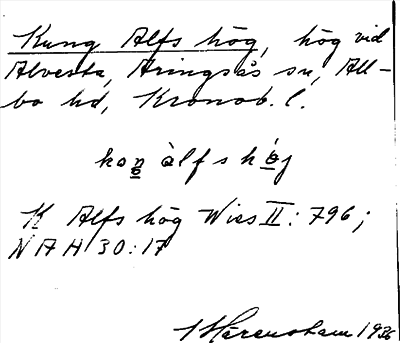 Kung Alfs hög, hög vid
Alvesta, Aringsås sn, All-
bo hd, Kronob. l.
koṉ àlfs hǫ́j
K Alfs hög Wies II: 796;
NAH 30:17
1936